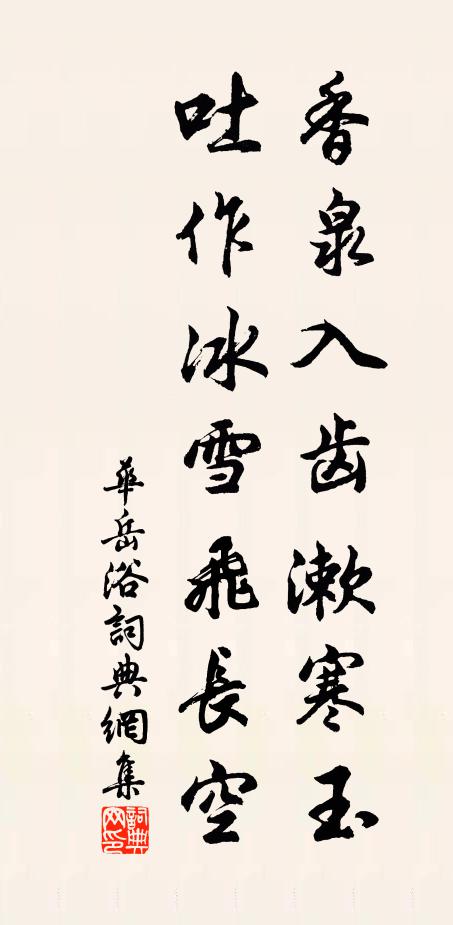 香泉入齿漱寒玉
吐作冰雪飛長空
華岳浴詞典網集
詞典网印